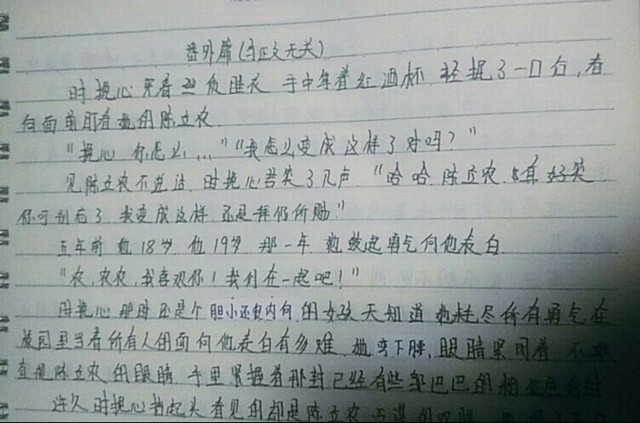 番外篇(与正文无关)
时挽心穿着 夜睡衣 手中拿着红酒杯 轻抿了一口后,看
向面前盯着她的陈立农
"挽心 你怎么..." "我怎么变成这样了对吗?"
见陈立农不说话 时挽心苦笑了几声 "哈哈 陈立农 好笑
你可别忘了 我变成这样 还是拜你所赐"
五年前 她18岁 他19岁 那一年 她鼓起勇气向他表白
"农,农农,我喜欢你!我们在一起吧!"
时挽心那时还是个胆小还很内向的女孩天知道她耗尽所有勇气在
校园里当着所有人的面向他表白有多难 她弯下腰,眼睛紧闭着 不敢
直视陈立农的眼睛 手里紧握着那封已经有些皱巴巴的粉色
许久 时挽心抬起头看见的却是陈立农